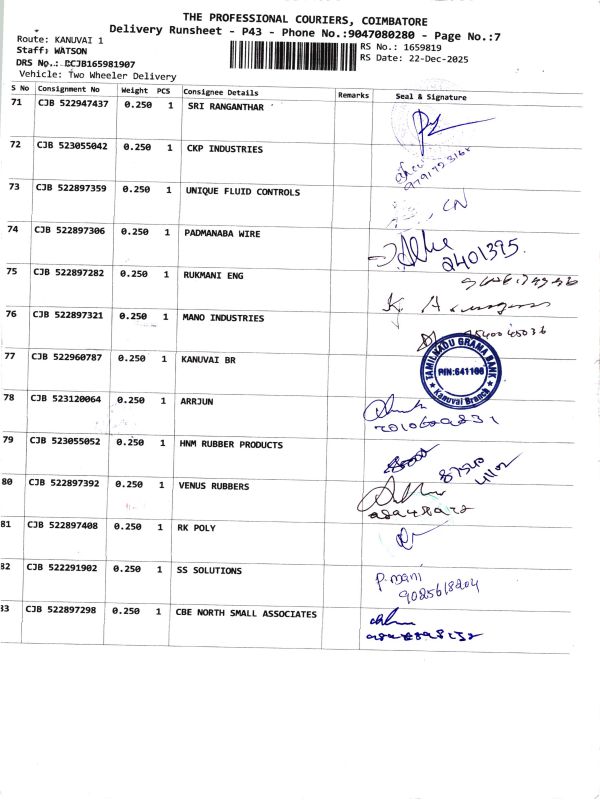 THE PROFESSIONAL COURIERS, COIMBATORE
Delivery Runsheet - P43 - Phone No.:9047080280 - Page No.:7
Route: KANUVAI 1
Staff: WATSON
DRS No.: DCJB165981907
Vehicle: Two Wheeler Delivery
RS No.: 1659819
RS Date: 22-Dec-2025
S No Consignment No Weight PCS Consignee Details Remarks Seal & Signature
71 CJB 522947437 0.250 1 SRI RANGANTHAR
72 CJB 523055042 0.250 1 CKP INDUSTRIES
73 CJB 522897359 0.250 1 UNIQUE FLUID CONTROLS
74 CJB 522897306 0.250 1 PADMANABA WIRE
2401395
75 CJB 522897282 0.250 1 RUKMANI ENG
76 CJB 522897321 0.250 1 MANO INDUSTRIES
77 CJB 522960787 0.250 1 KANUVAI BR
TAMILNADU GRAMA BANK
PIN:641108
★ Kanuvai Branch ★
78 CJB 523120064 0.250 1 ARRJUN
79 CJB 523055052 0.250 1 HNM RUBBER PRODUCTS
80 CJB 522897392 0.250 1 VENUS RUBBERS
81 CJB 522897408 0.250 1 RK POLY
82 CJB 522291902 0.250 1 SS SOLUTIONS
P. mani
9025618204
83 CJB 522897298 0.250 1 CBE NORTH SMALL ASSOCIATES